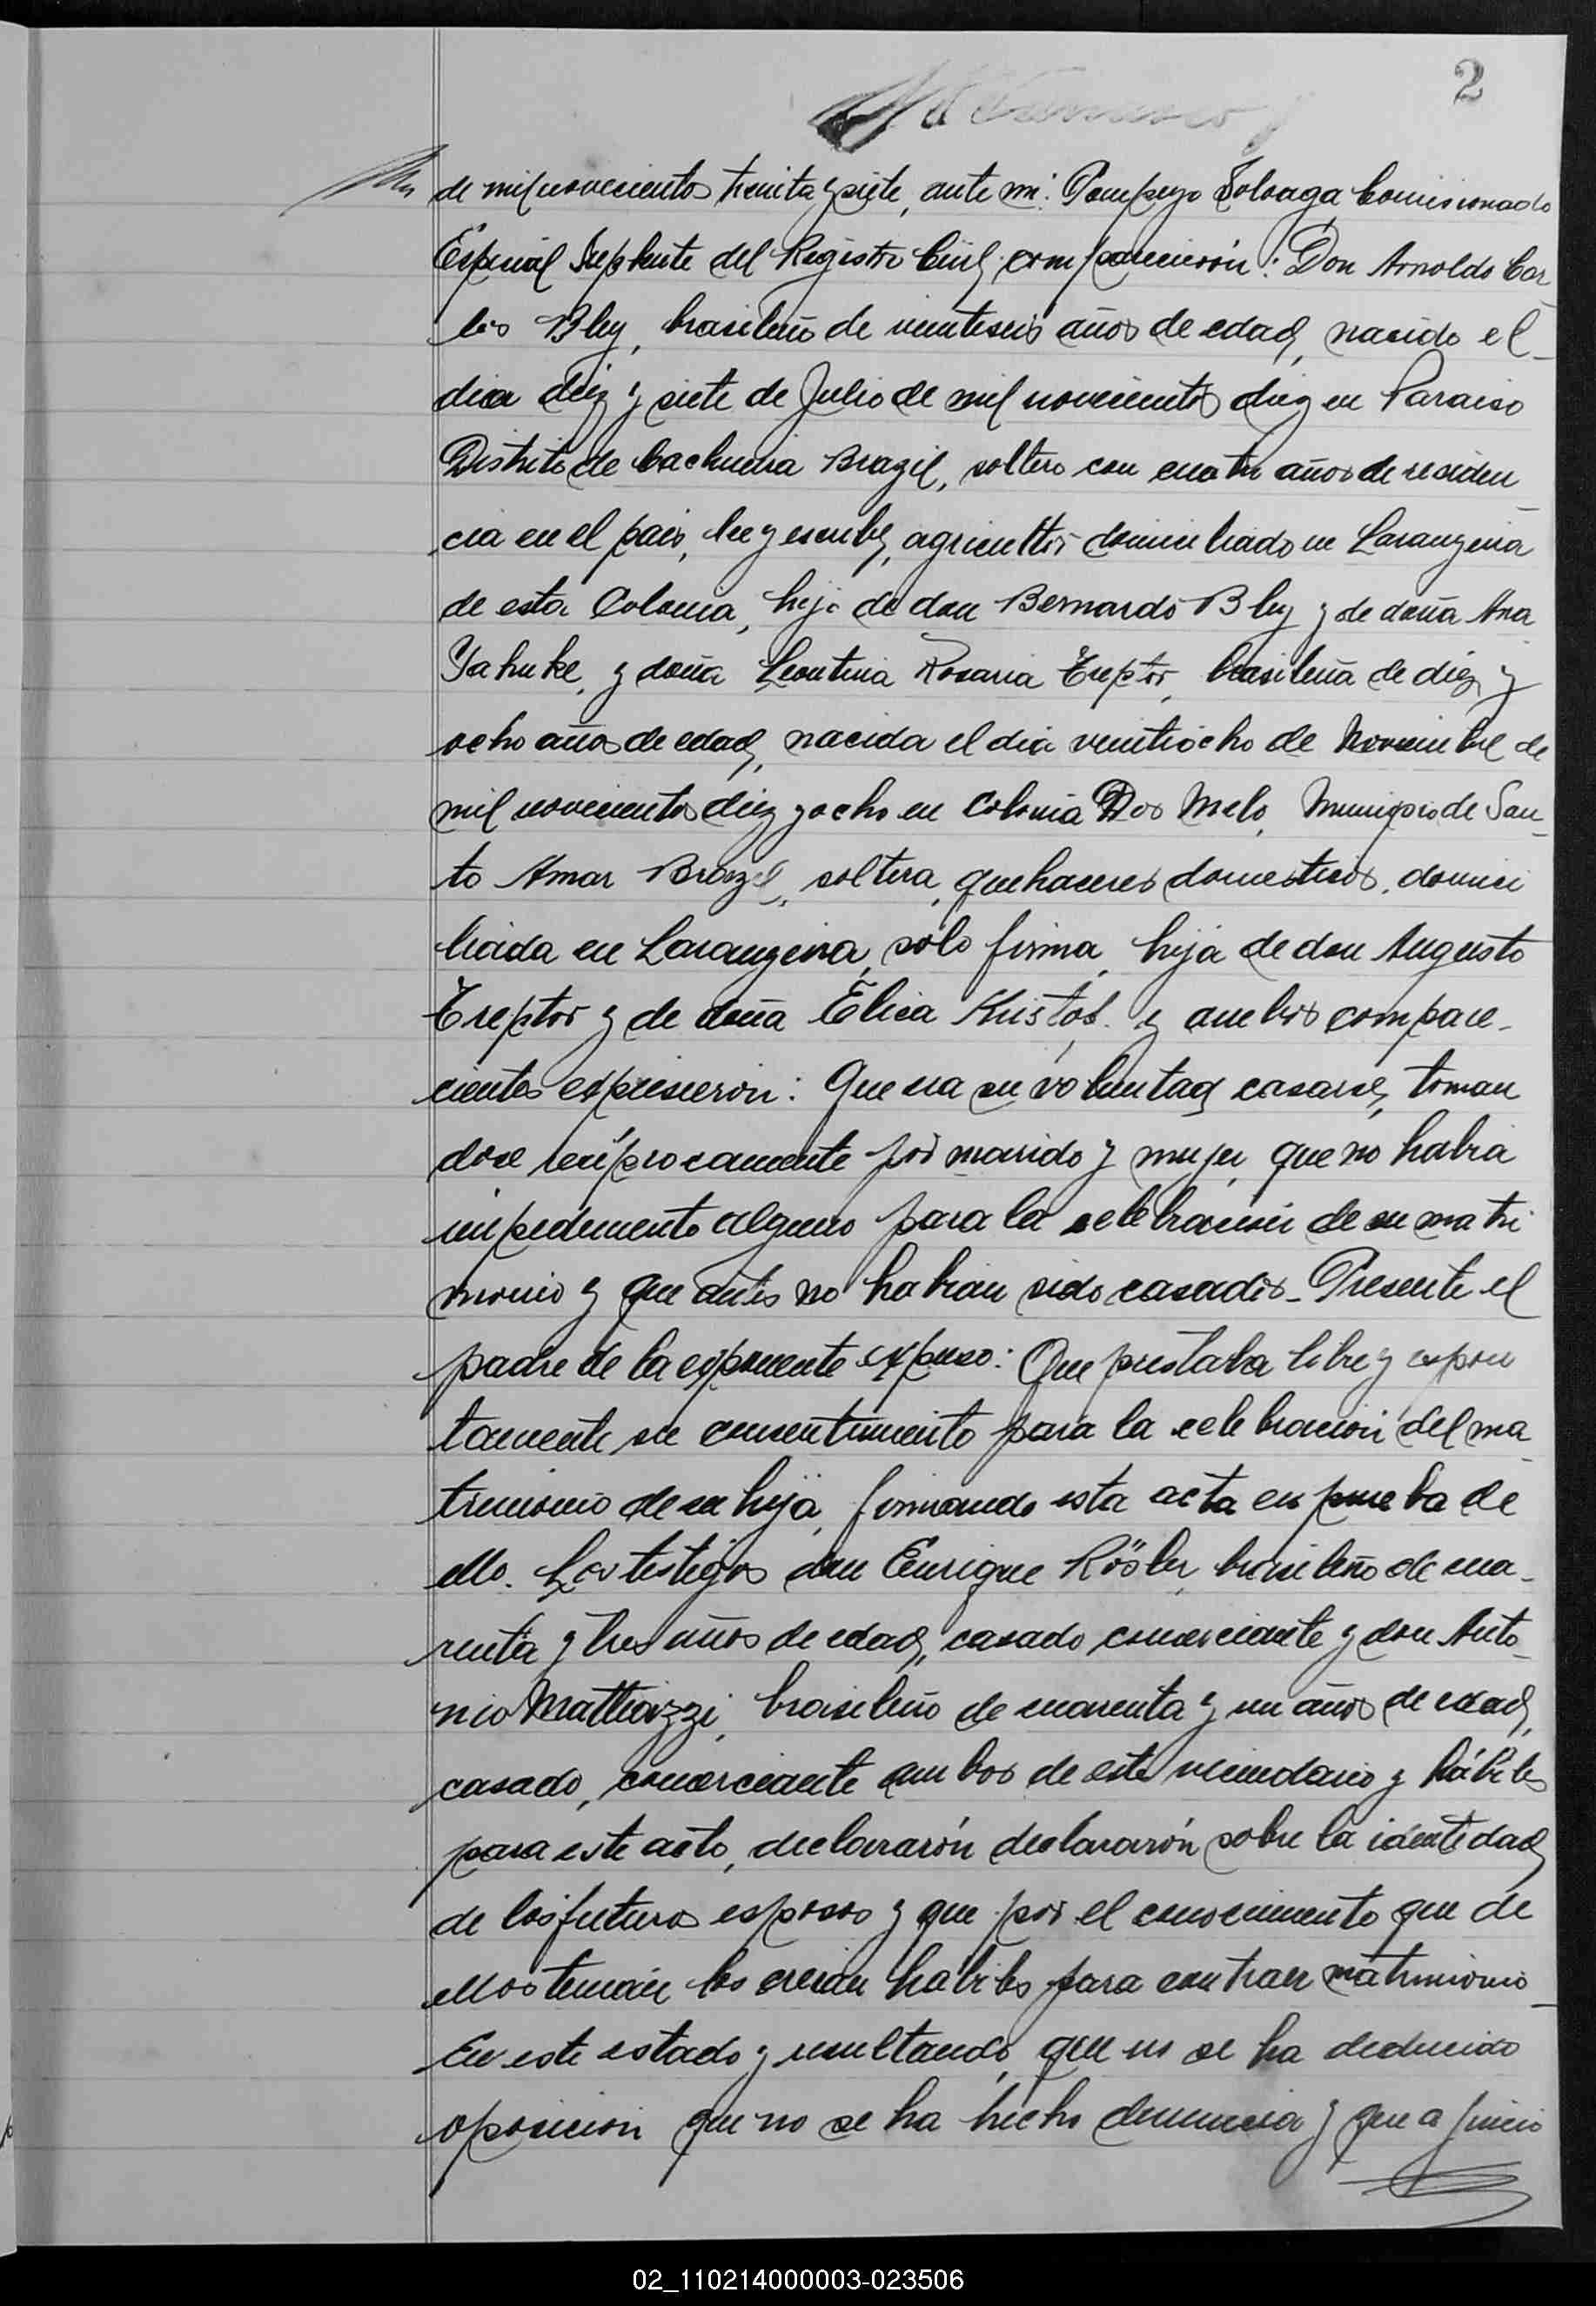 2
de mil novecientos treinta y siete, ante mi: Pompeyo Soloaga Comisionado
Especial Suplente del Registro Civil, comparecieron: Don Arnoldo Car
los Bley, brasileño de veinteseis años de edad, nacido el
dia diez y siete de Julio de mil novecientos diez en Paraiso
Distrito de Cachueira Brazil, soltero con cuatro años de residen
cia en el pais, lee y escribe, agricultor domiciliado en Larangeira
de esta Colonia, hijo de don Bernardo Bley y de doña Ana
Yahnke, y doña Leontina Rosaria Treptor, brasileña de diez y
ocho años de edad, nacida el dia veintiocho de Noviembre de
mil novecientos diez y ocho en Colonia Dos Melo, Municipio de San
to Amar Brazil, soltera, quehaceres domesticos, domici
liada en Larangeira, solo firma, hija de don Augusto
Treptor y de doña Elica Kristof. y ambos compare-
cientes expresieron: Que era su voluntad casarse, toman
dose reciprocamente por marido y mujer, que no habia
impedimento alguno para la celebracion de su matri
monio y que antes no habian sido casados_ Presente el
padre de la exponente expuso: Que prestaba libre y espon
tamente su consentimiento para la celebracion del ma
trimonio de su hija, firmando esta acta en prueba de
ello. Los testigos don Enrique Rösler, brasileño de cua-
renta y tres años de edad, casado comerciante y don Anto
nio Mattiazzi, brasileño de cuarenta y un años de edad,
casado, comerciante ambos de este vecindario y hábiles
para este acto, declararón declararón sobre la identidad
de los futuros esposos y que por el conocimiento que de
ellos tenián los creián habiles para contraer matrimonio
En este estado y resultando, que no se ha deducido
oposicion que no se ha hecho denuncia y que a juicio
02_110214000003-023506